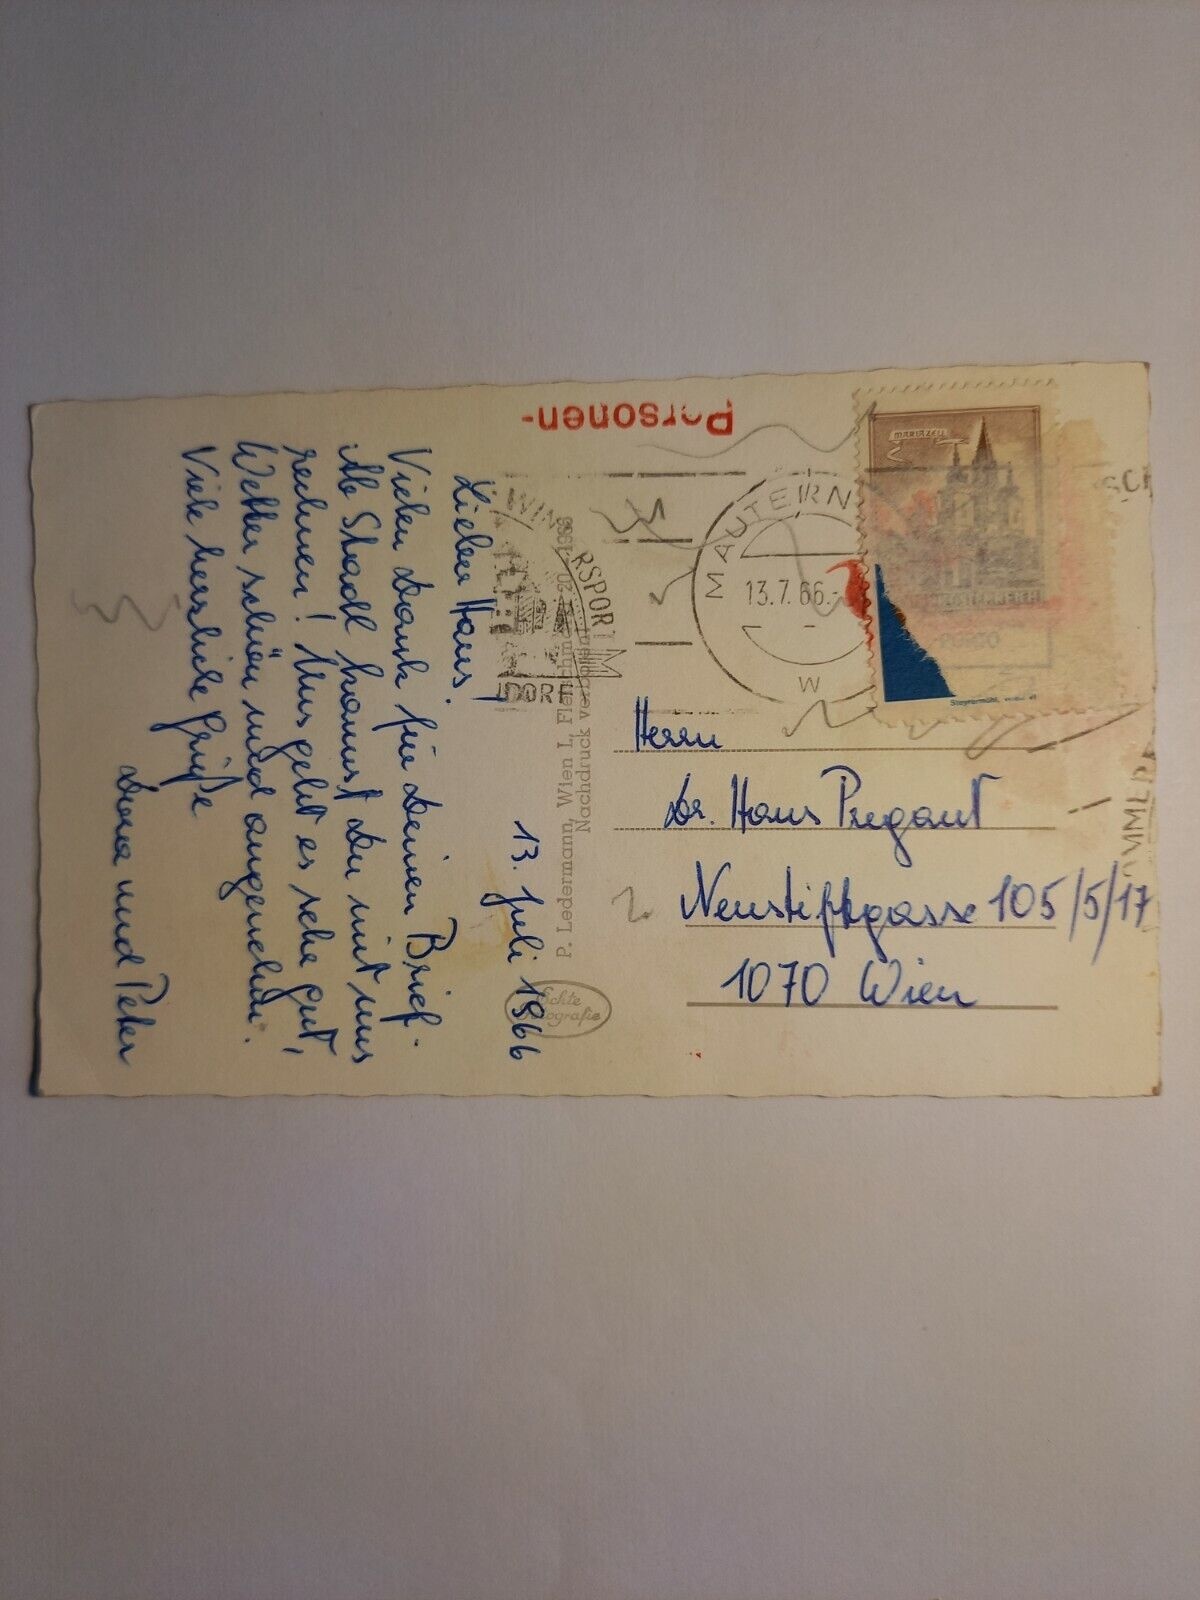 13. Juli 1966
Lieber Hans!
Vielen Dank für Deinen Brief.
Ab Stadl kannst Du mit uns
rechnen! Uns geht es sehr gut,
Wetter schön und angenehm.
Viele herzliche Grüße
und Peter
Personen-
P. Ledermann, Wien I, 20 1336
Nachdruck verboten
Echte
MAUTERN
13.7.66.-
W
RSPORT
MARIAZELL
Herrn
Dr. Hans Pregant
Neustiftgasse 105/5/17
1070 Wien